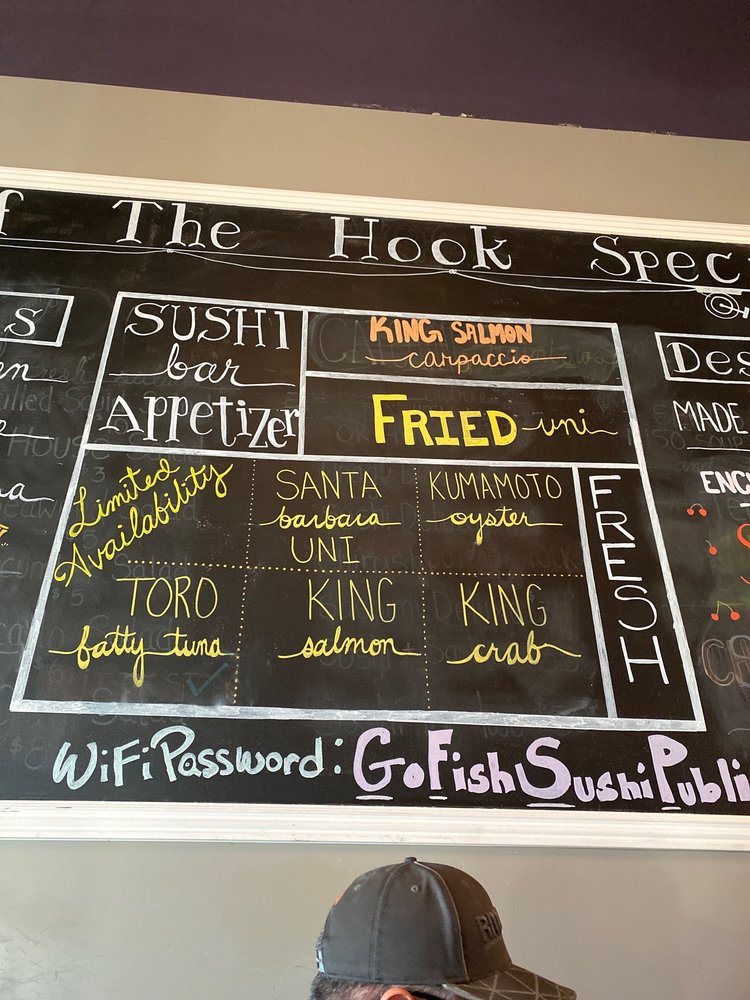 The Hook
s
SUSHI
bar
Appetizer
KING SALMON
carpaccio
FRIED uni
Limited
Availability
SANTA
barbara
UNI
KUMAMOTO
oyster
TORO
fatty tuna
KING
salmon
KING
crab
FRESH
MADE
WiFi Password: GoFishSushiPubli